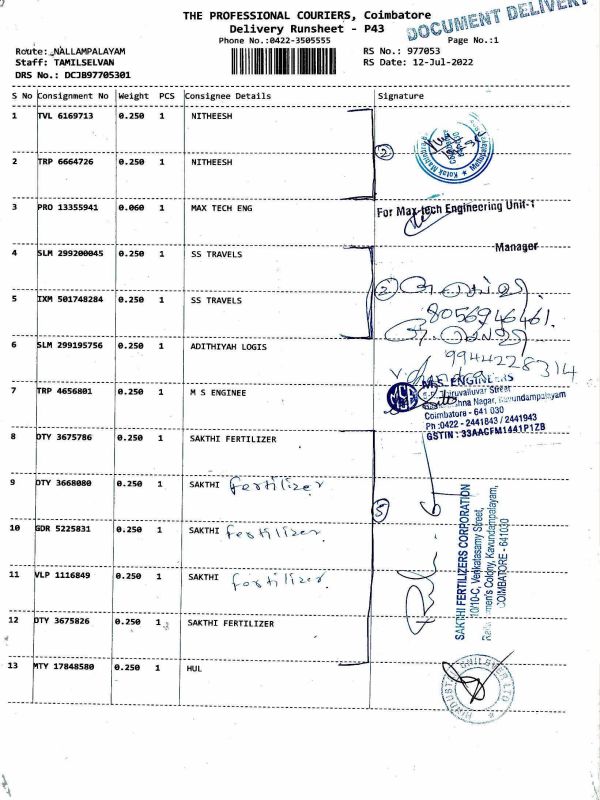 THE PROFESSIONAL COURIERS, Coimbatore
DOCUMENT DELIVERY
Delivery Runsheet - P43
Phone No.:0422-3505555
Page No.:1
Route: NALLAMPALAYAM
RS No.: 977053
Staff: TAMILSELVAN
RS Date: 12-Jul-2022
DRS No.: DCJB97705301
S No Consignment No Weight PCS Consignee Details Signature
1 TVL 6169713 0.250 1 NITHEESH
2
2 TRP 6664726 0.250 1 NITHEESH
3 PRO 13355941 0.060 1 MAX TECH ENG
For Max-tech Engineering Unit-1
Manager
4 SLM 299200045 0.250 1 SS TRAVELS
2
5 IXM 501748284 0.250 1 SS TRAVELS
8056946461
6 SLM 299195756 0.250 1 ADITHIYAH LOGIS
9944228314
7 TRP 4656801 0.250 1 M S ENGINEE
M.S. ENGINEERS
Thiruvalluvar Street
Nagar, Kavundampalayam
Coimbatore - 641 030
Ph :0422 - 2441843 / 2441943
GSTIN : 33AACFM1441P1ZB
8 DTY 3675786 0.250 1 SAKTHI FERTILIZER
9 DTY 3668080 0.250 1 SAKTHI fertilizer
5
10 GDR 5225831 0.250 1 SAKTHI fertilizer
11 VLP 1116849 0.250 1 SAKTHI fertilizer
SAKTHI FERTILIZERS CORPORATION
10/10-C, Venkatasamy Street,
Colony, Kavundampalayam,
COIMBATORE - 641030
12 DTY 3675826 0.250 1 SAKTHI FERTILIZER
13 MTY 17848580 0.250 1 HUL